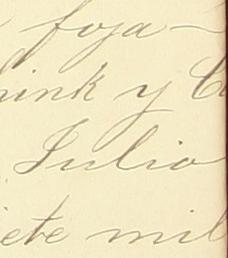 foja
ink y
Julio
ete mil